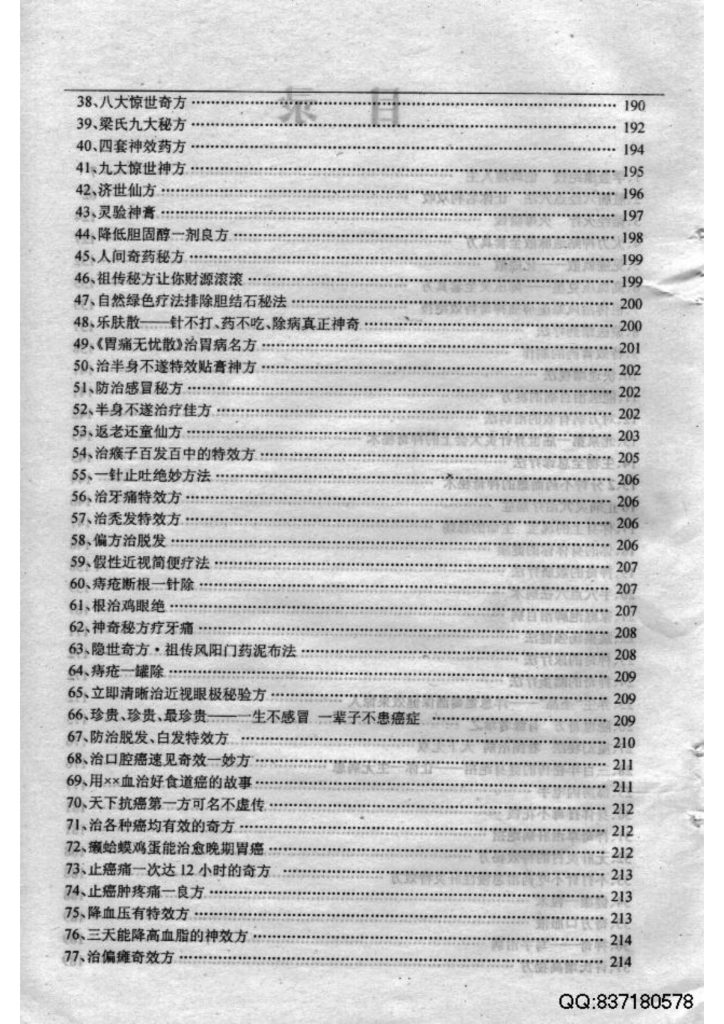 38、八大惊世奇方……190
39、梁氏九大秘方……192
40、四套神效药方……194
41、九大惊世神方……195
42、济世仙方……196
43、灵验神膏……197
44、降低胆固醇一剂良方……198
45、人间奇药秘方……199
46、祖传秘方让你财源滚滚……199
47、自然绿色疗法排除胆结石秘法……200
48、乐肤散——针不打、药不吃、除病真正神奇……200
49、《胃痛无忧散》治胃病名方……201
50、治半身不遂特效贴膏神方……202
51、防治感冒秘方……202
52、半身不遂治疗佳方……202
53、返老还童仙方……203
54、治瘊子百发百中的特效方……205
55、一针止吐绝妙方法……206
56、治牙痛特效方……206
57、治秃发特效方……206
58、偏方治脱发……206
59、假性近视简便疗法……207
60、痔疮断根一针除……207
61、根治鸡眼绝……207
62、神奇秘方疗牙痛……208
63、隐世奇方·祖传风阳门药泥布法……208
64、痔疮一罐除……209
65、立即清晰治近视眼极秘验方……209
66、珍贵、珍贵、最珍贵——一生不感冒 一辈子不患癌症……209
67、防治脱发、白发特效方……210
68、治口腔癌速见奇效一妙方……211
69、用××血治好食道癌的故事……211
70、天下抗癌第一方可名不虚传……212
71、治各种癌均有效的奇方……212
72、癞蛤蟆鸡蛋能治愈晚期胃癌……212
73、止癌痛一次达12小时的奇方……213
74、止癌肿疼痛一良方……213
75、降血压有特效方……213
76、三天能降高血脂的神效方……214
77、治偏瘫奇效方……214
QQ:837180578